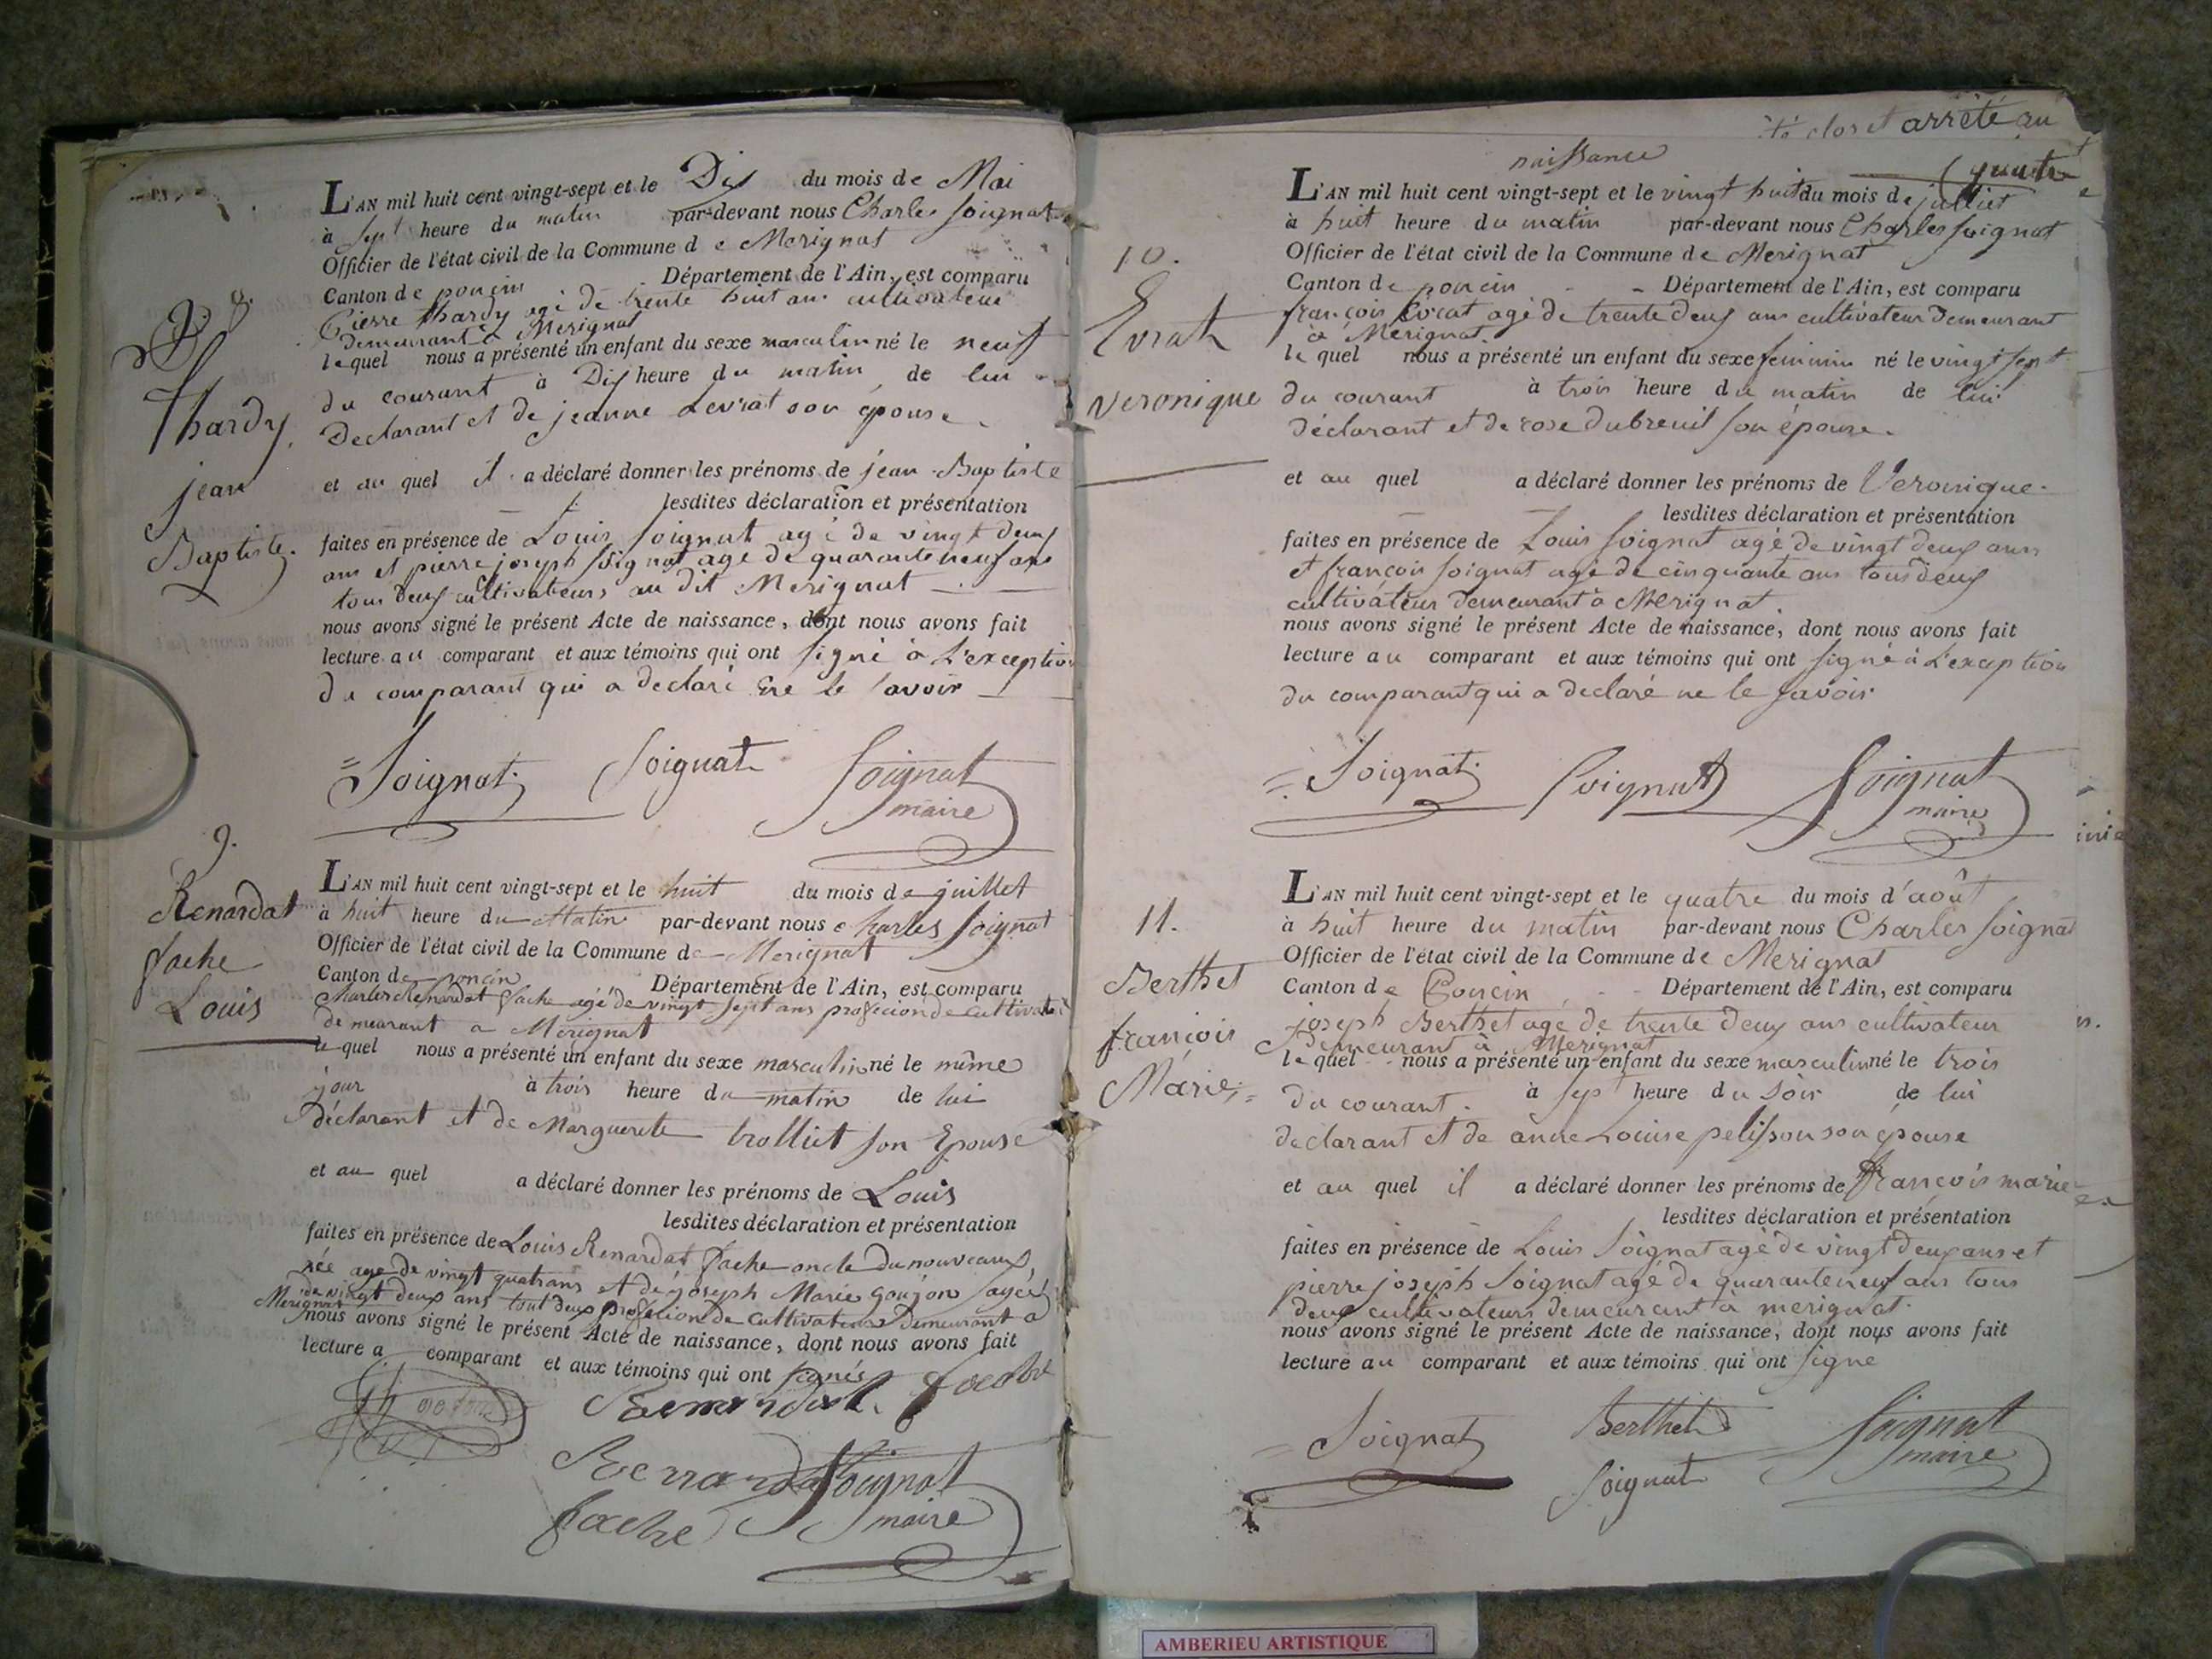 8.
Thardy
jean
Baptiste.
L'AN mil huit cent vingt-sept et le Dix du mois de Mai
à sept heure du matin par-devant nous Charles soignat
Officier de l'état civil de la Commune de Merignat
Canton de poncin Département de l'Ain, est comparu
Pierre thardy agé de trente huit ans cultivateur
demeurant à Merignat
lequel nous a présenté un enfant du sexe masculin né le neuf
du courant à Dix heure du matin de lui
Declarant et de jeanne Levrat son épouse.
et au quel il a déclaré donner les prénoms de jean-Baptiste
lesdites déclaration et présentation
faites en présence de Louis soignat agé de vingt deux
ans et pierre joseph soignat agé de quarante neuf ans
tous deux cultivateurs au dit Merignat
nous avons signé le présent Acte de naissance, dont nous avons fait
lecture au comparant et aux témoins qui ont signé à L'exception
du comparant qui a declaré ne le savoir
Soignat Soignat Soignat
maire
9.
Renardat
fache
Louis
L'AN mil huit cent vingt-sept et le huit du mois de juillet
à huit heure du Matin par-devant nous charles soignat
Officier de l'état civil de la Commune de Merignat
Canton de poncin Département de l'Ain, est comparu
Charles Renardat fache agé de vingt sept ans profecion de cultivateur
demeurant a Merignat
le quel nous a présenté un enfant du sexe masculin né le même
jour à trois heure du matin de lui
déclarant et de Marguerite trolliet son Epouse
et au quel a déclaré donner les prénoms de Louis
lesdites déclaration et présentation
faites en présence de Louis Renardat fache oncle du nouveaux
née age de vingt quatrans et de joseph Marie goujon agée
de vingt deux ans tout deux profecion de cultivateurs Demeurant a
Merignat
nous avons signé le présent Acte de naissance, dont nous avons fait
lecture a comparant et aux témoins qui ont signés
Renardat
Renardat Soignat
fache maire
té clos et arrêté au
quatre
naissance
10.
Evrat
veronique
L'AN mil huit cent vingt-sept et le vingt huit du mois de julliet
à huit heure du matin par-devant nous Charles soignat
Officier de l'état civil de la Commune de Merignat
Canton de poncin Département de l'Ain, est comparu
françois Evrat agé de trente deux ans cultivateur demeurant
à Merignat
le quel nous a présenté un enfant du sexe feminin né le vingt sept
du courant à trois heure du matin de lui
déclarant et de rose dubreuil son épouse.
et au quel a déclaré donner les prénoms de Veronique.
lesdites déclaration et présentation
faites en présence de Louis soignat agé de vingt deux ans
et françois soignat agé de cinquante ans tous deux
cultivateur demeurant à Merignat.
nous avons signé le présent Acte de naissance, dont nous avons fait
lecture au comparant et aux témoins qui ont signé à L'exception
du comparant qui a declaré ne le savoir
Soignat Soignat Soignat
maire
11.
Berthet
françois
Marie
L'AN mil huit cent vingt-sept et le quatre du mois d'août
à huit heure du matin par-devant nous Charles soignat
Officier de l'état civil de la Commune de Merignat
Canton de Poncin Département de l'Ain, est comparu
joseph Berthet agé de trente deux ans cultivateur
Demeurant à Merignat
le quel nous a présenté un enfant du sexe masculin né le trois
du courant. à sept heure du soir de lui
declarant et de anne Louise pelisson son épouse
et au quel il a déclaré donner les prénoms de françois marie
lesdites déclaration et présentation
faites en présence de Louis soignat agé de vingt deux ans et
pierre joseph soignat agé de quarante neuf ans tous
deux cultivateurs demeurant à merignat.
nous avons signé le présent Acte de naissance, dont nous avons fait
lecture au comparant et aux témoins qui ont signé
Soignat Berthet Soignat
Soignat maire
AMBERIEU ARTISTIQUE